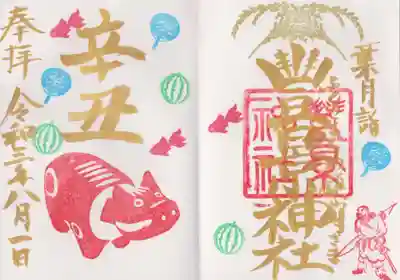 葉月詣
豊景神社
辛丑
奉拝 令和三年八月一日